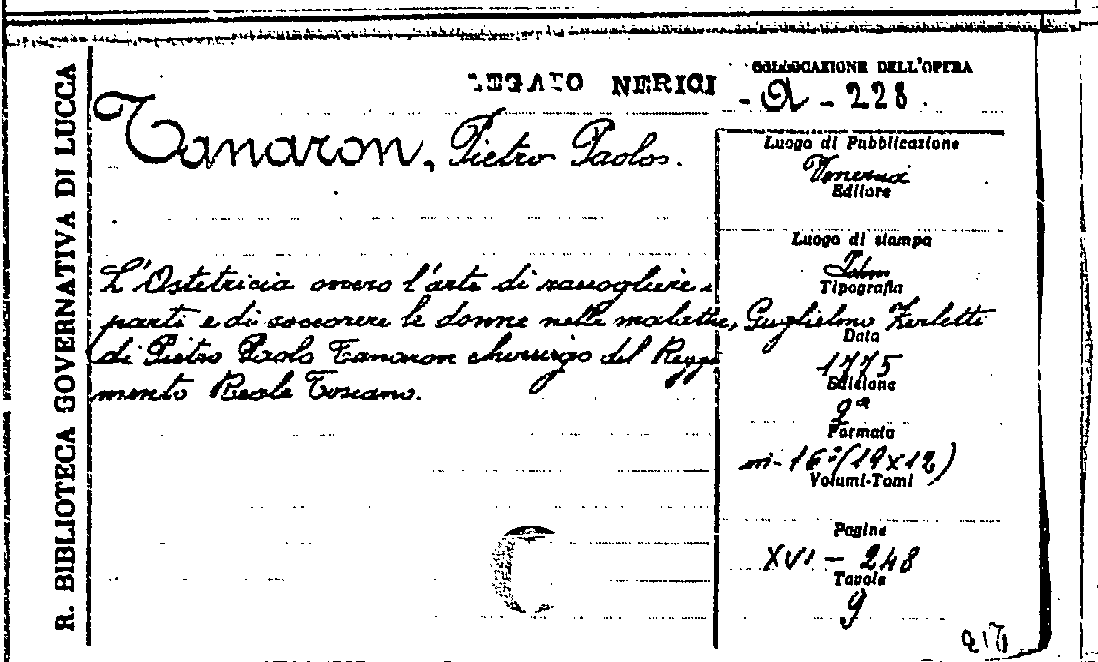 R. BIBLIOTECA GOVERNATIVA DI LUCCA
LEGATO NERICI
COLLOCAZIONE DELL'OPERA
- A - 228
Tanaron, Pietro Paolo.
Luogo di Pubblicazione
Venezia
Editore
Luogo di stampa
Idem
Tipografia
L'Ostetricia ovvero l'arte di raccogliere i
parti e di soccorrere le donne nelle malattie,
di Pietro Paolo Tanaron chirurgo del Reggi
mento Reale Toscano.
Guglielmo Zerletti
Data
1775
Edizione
2a
Formato
m- 16° (19x12)
Volumi-Tomi
Pagine
XVI - 248
Tavole
9